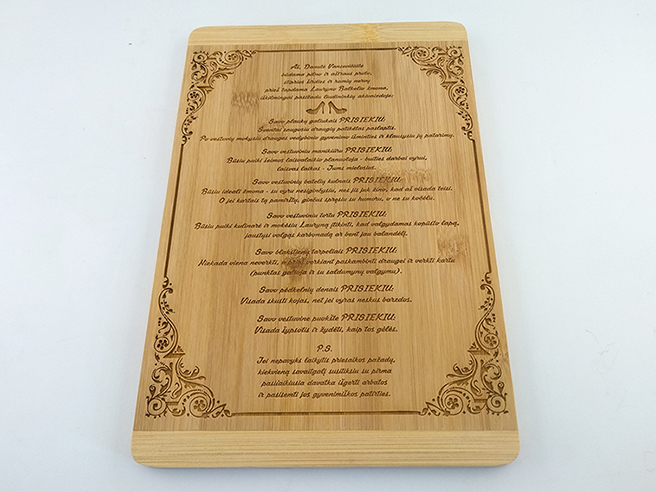 Aš, Danutė
būdama pilno ir aštraus proto,
stiprios širdies ir ramių nervų
prieš tapdama Lauryno Balkelio žmona,
iškilmingai pasižadu liudininkių akivaizdoje:
Savo plaukų galiukais PRISIEKIU:
Šventai saugosiu draugių patikėtas paslaptis.
Po vestuvių mokysiu draugus vedybinio gyvenimo išminties ir klausysiu jų patarimų.
Savo vestuviniu manikiūru PRISIEKIU:
Būsiu puiki šeimos laisvalaikio planuotoja - buities darbai vyrui,
laisvas laikas - Jums mielosios.
Savo vestuvinių batelių kulnais PRISIEKIU:
Būsiu ideali žmona - su vyru nesiginčysiu, nes jis juk žino, kad aš visada teisi.
O jei kartais tą pamirštų, ginčus spręsiu su humoru, o ne su kočėlu.
Savo vestuviniu tortu PRISIEKIU:
Būsiu puiki kulinarė ir mokėsiu Lauryną įtikinti, kad valgydamas kopūsto lapą,
jaustųsi valgąs karbonadą ar bent jau balandėlį.
Savo blakstienų tarpeliais PRISIEKIU:
Niekada viena neverkti, o prieš verkiant paskambinti draugei ir verkti kartu
(punktas galioja ir su saldumynų valgymu).
Savo pėdkelnių denais PRISIEKIU:
Visada skusti kojas, net jei vyras neskus barzdos.
Savo vestuvine puokšte PRISIEKIU:
Visada šypsotis ir žydėti, kaip tos gėlės.
P.S.
Jei nepavyks laikytis priesaikos pažadų,
kiekvieną savaitgalį susitiksiu su pirma
pasitaikiusia davatka išgerti arbatos
ir pasisemti jos gyvenimiškos patirties.